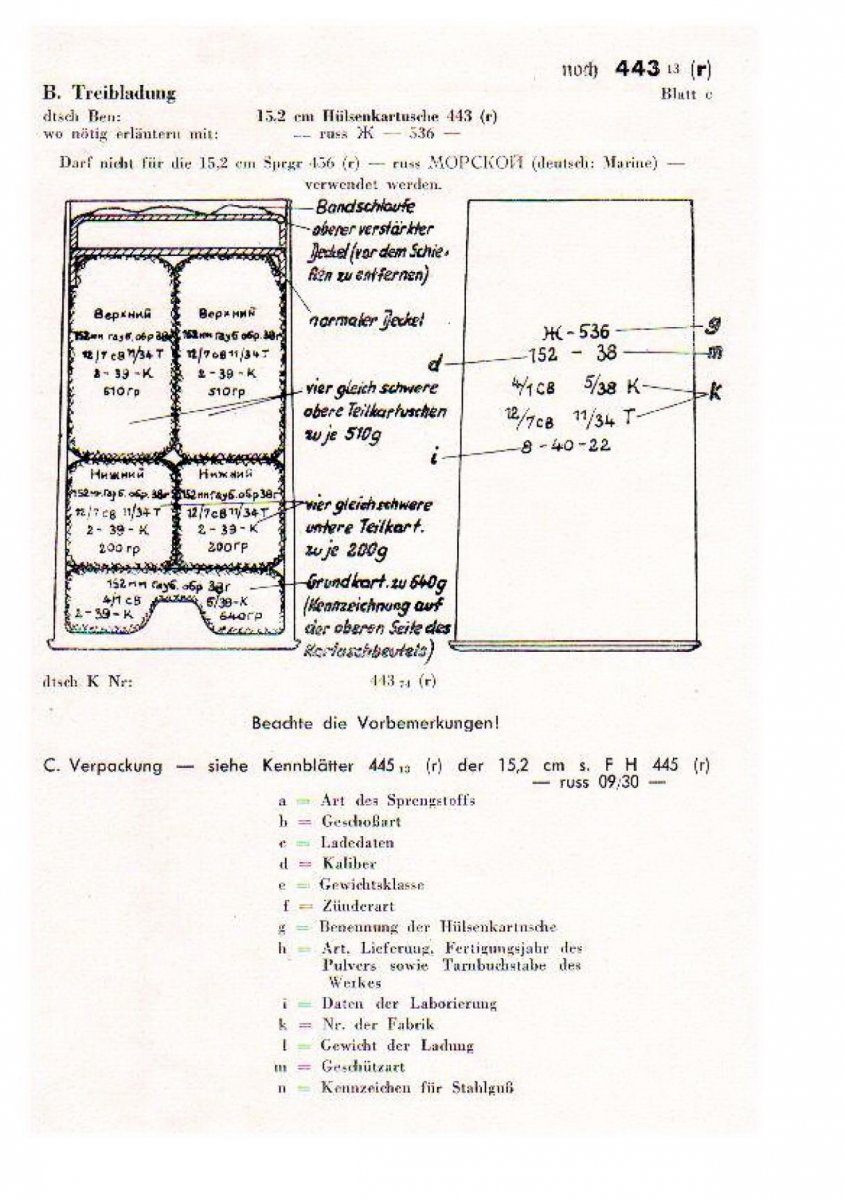 noch 443 13 (r)
B. Treibladung
Blatt c
dtsch Ben: 15.2 cm Hülsenkartusche 443 (r)
wo nötig erläutern mit: — russ Ж — 536 —
Darf nicht für die 15,2 cm Sprgr 456 (r) — russ МОРСКОЙ (deutsch: Marine) —
verwendet werden.
Bandschlaufe
oberer verstärkter
Deckel (vor dem Schie-
ßen zu entfernen)
normaler Deckel
Верхний
152мм гауб. обр. 38г
12/7 св 11/34 Т
2-39-К
510гр
Верхний
152мм гауб. обр. 38г
12/7 св 11/34 Т
2-39-К
510гр
vier gleich schwere
obere Teilkartuschen
zu je 510g
Нижний
152мм гауб. обр. 38г
12/7 св 11/34 Т
2-39-К
200гр
Нижний
152мм гауб. обр. 38г
12/7 св 11/34 Т
2-39-К
200гр
vier gleich schwere
untere Teilkart.
zu je 200g
152мм гауб. обр 38г
4/1 св 5/39-К
2-39-К 640гр
Grundkart. zu 640g
(Kennzeichnung auf
der oberen Seite des
Kartuschbeutels)
Ж-536 g
d 152 - 38 m
4/1 св 5/38 К k
12/7 св 11/34 Т
i 8-40-22
dtsch K Nr: 443 74 (r)
Beachte die Vorbemerkungen!
C. Verpackung — siehe Kennblätter 445 13 (r) der 15,2 cm s. F H 445 (r)
— russ 09/30 —
a = Art des Sprengstoffs
b = Geschoßart
c = Ladedaten
d = Kaliber
e = Gewichtsklasse
f = Zünderart
g = Benennung der Hülsenkartusche
h = Art, Lieferung, Fertigungsjahr des
Pulvers sowie Tarnbuchstabe des
Werkes
i = Daten der Laborierung
k = Nr. der Fabrik
l = Gewicht der Ladung
m = Geschützart
n = Kennzeichen für Stahlguß